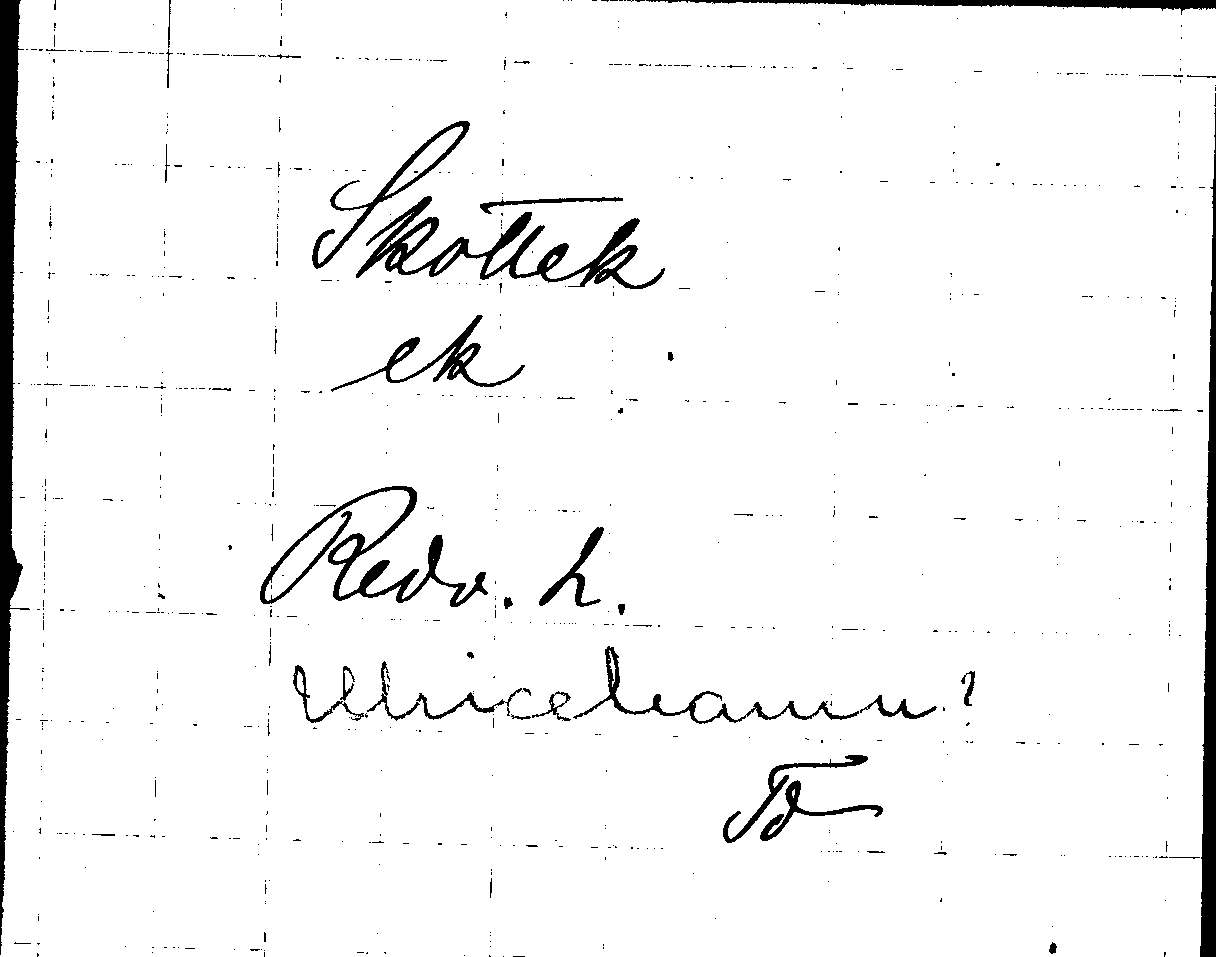 Skottek
ek
Redv. h.
Ulricehamn?